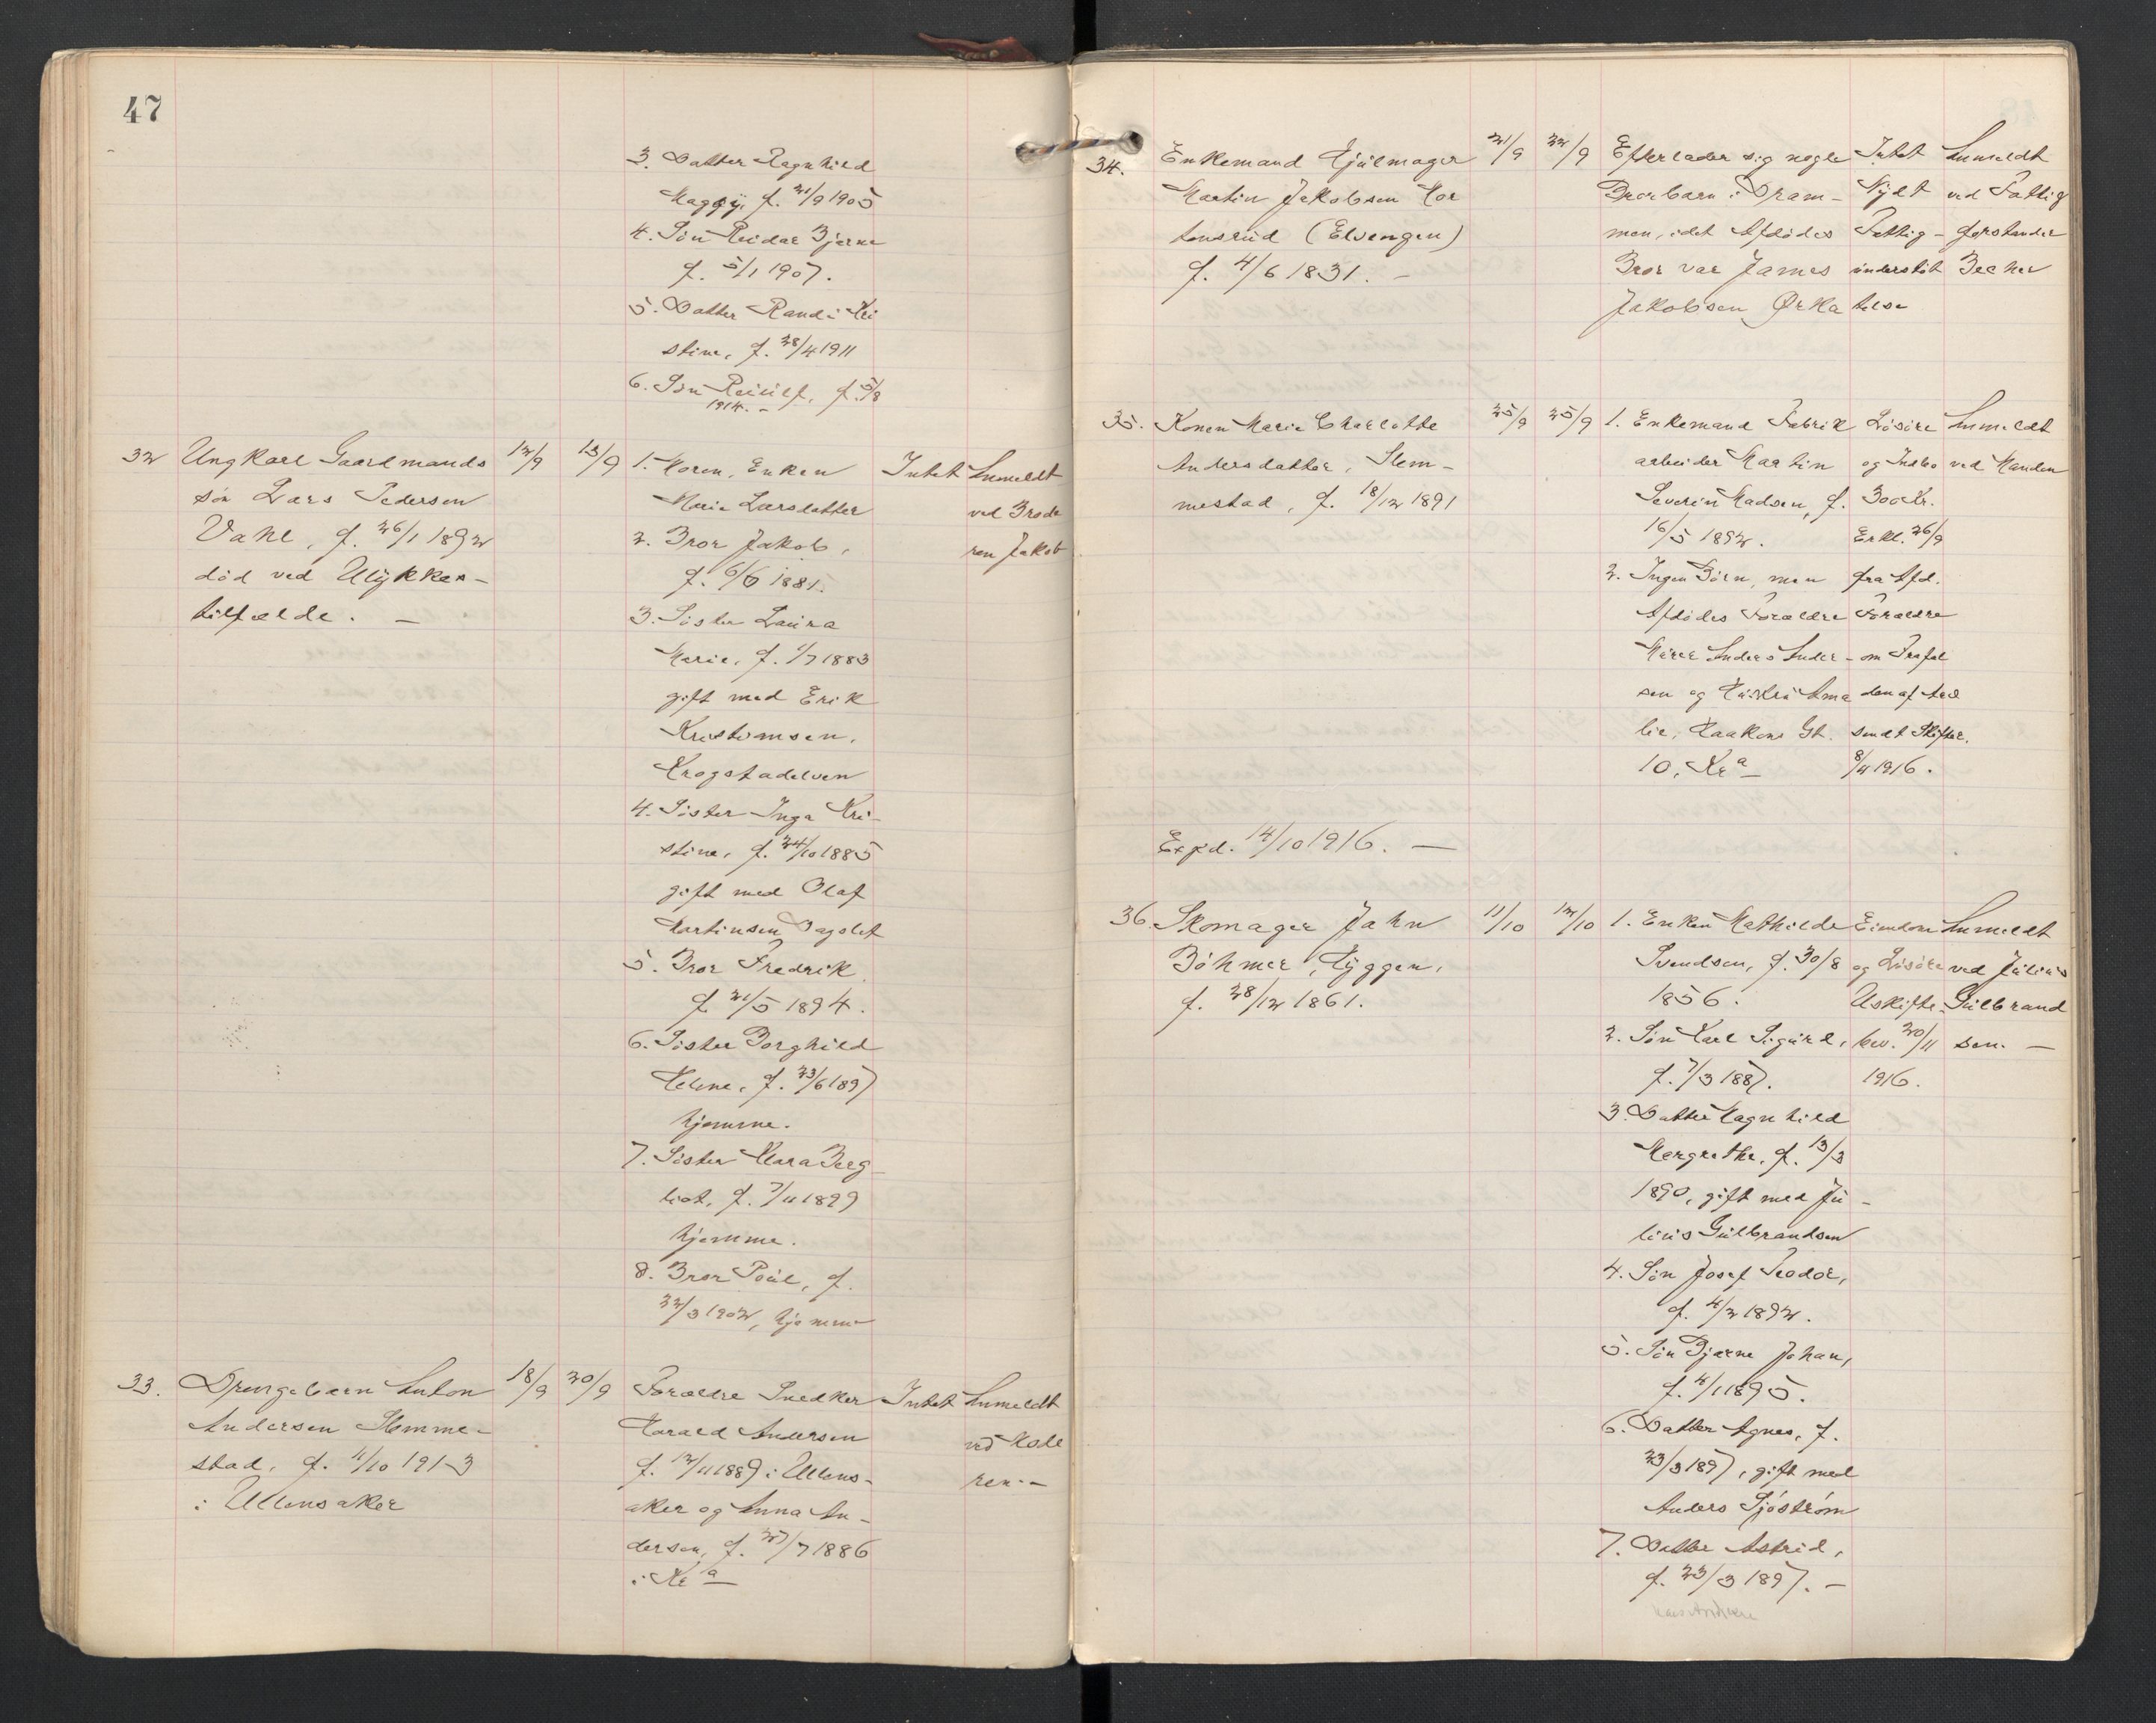 47
3. Datter Ragnhild
Maggy, f. 21/9 1905
4. Søn Reidar Bjarne
f. 5/1 1907.
5. Datter Randi Kri
stine, f. 28/4 1911
6. Søn Reiulf, f. 5/8
1914. -
32 Ungkarl Gaardmands
søn Lars Pedersen
Vahl, f. 26/1 1892
død ved Ulykkes-
tilfælde. -
12/9
13/9
1. Moren, Enken
Marie Larsdatter
2. Bror Jakob,
f. 6/6 1881.
3. Søster Laura
Marie, f. 1/7 1883
gift med Erik
Kristiansen,
Krogstadelven
4. Søster Inga Kri-
stine, f. 24/10 1885
gift med Olaf
Martinsen Dagslet
5. Bror Fredrik
f. 21/5 1894.
6. Søster Borghild
Helene, f. 23/6 1897
hjemme.
7. Søster Klara Berg-
liot, f. 7/11 1899
hjemme.
8. Bror Poul, f.
22/3 1902, hjemme
Intet
Anmeldt
ved Brode
ren Jakob
33. Drengebarn Anton
Andersen Slemme-
stad, f. 11/10 1913
i Ullensaker
18/9
20/9
Forældre Snedker
Harald Andersen
f. 12/11 1889 i Ullens-
aker og Anna An-
dersen, f. 27/7 1886
i Kr a
Intet
Anmeldt
ved Mode
ren. -
34. Enkemand Hjulmager
Martin Jakobsen Mor
tensrud (Elvengen)
f. 4/6 1831. -
21/9
22/9
Efterlader sig nogle
Brorbarn i Dram-
men, idet Afdødes
Bror var James
Jakobsen Ørka
Intet
Nydt
Fattig-
understøt
telse
Anmeldt
ved Fattig
forstander
Becher
35. Konen Marie Charlotte
Andersdatter, Slem-
mestad, f. 18/12 1891
25/9
25/9
1. Enkemand Fabrik
arbeider Martin
Severin Madsen, f.
16/5 1892.
2. Ingen Børn, men
Afdødes Forældre
Murer Anders Ander-
sen og Hustru Ama
lie, Haakons Gt.
10, Kr a
Løsøre
og Indbo
300 Kr.
Erkl. 26/9
fra Afd.
Forældre
om Frafal
den af Arv
sendt Skifter.
8/11 1916.
Anmeldt
ved Manden
Expd. 14/10 1916. -
36. Skomager Jahn
Böhmer, Hyggen,
f. 28/12 1861.
11/10
12/10
1. Enken Mathilde
Svendsen, f. 30/8
1856.
2. Søn Karl Sigurd,
f. 7/3 1887.
3. Datter Magnhild
Margrethe, f. 13/3
1890, gift med Ju-
lius Gulbrandsen
4. Søn Josef Teodor,
f. 4/2 1892.
5. Søn Bjarne Johan,
f. 4/1 1895.
6. Datter Agnes, f.
23/3 1897, gift med
Anders Sjöström
7. Datter Astrid,
f. 23/3 1897. -
Eiendom
og Løsøre
Uskifte-
bev. 20/11
1916.
Anmeldt
ved Julius
Gulbrand
sen. -